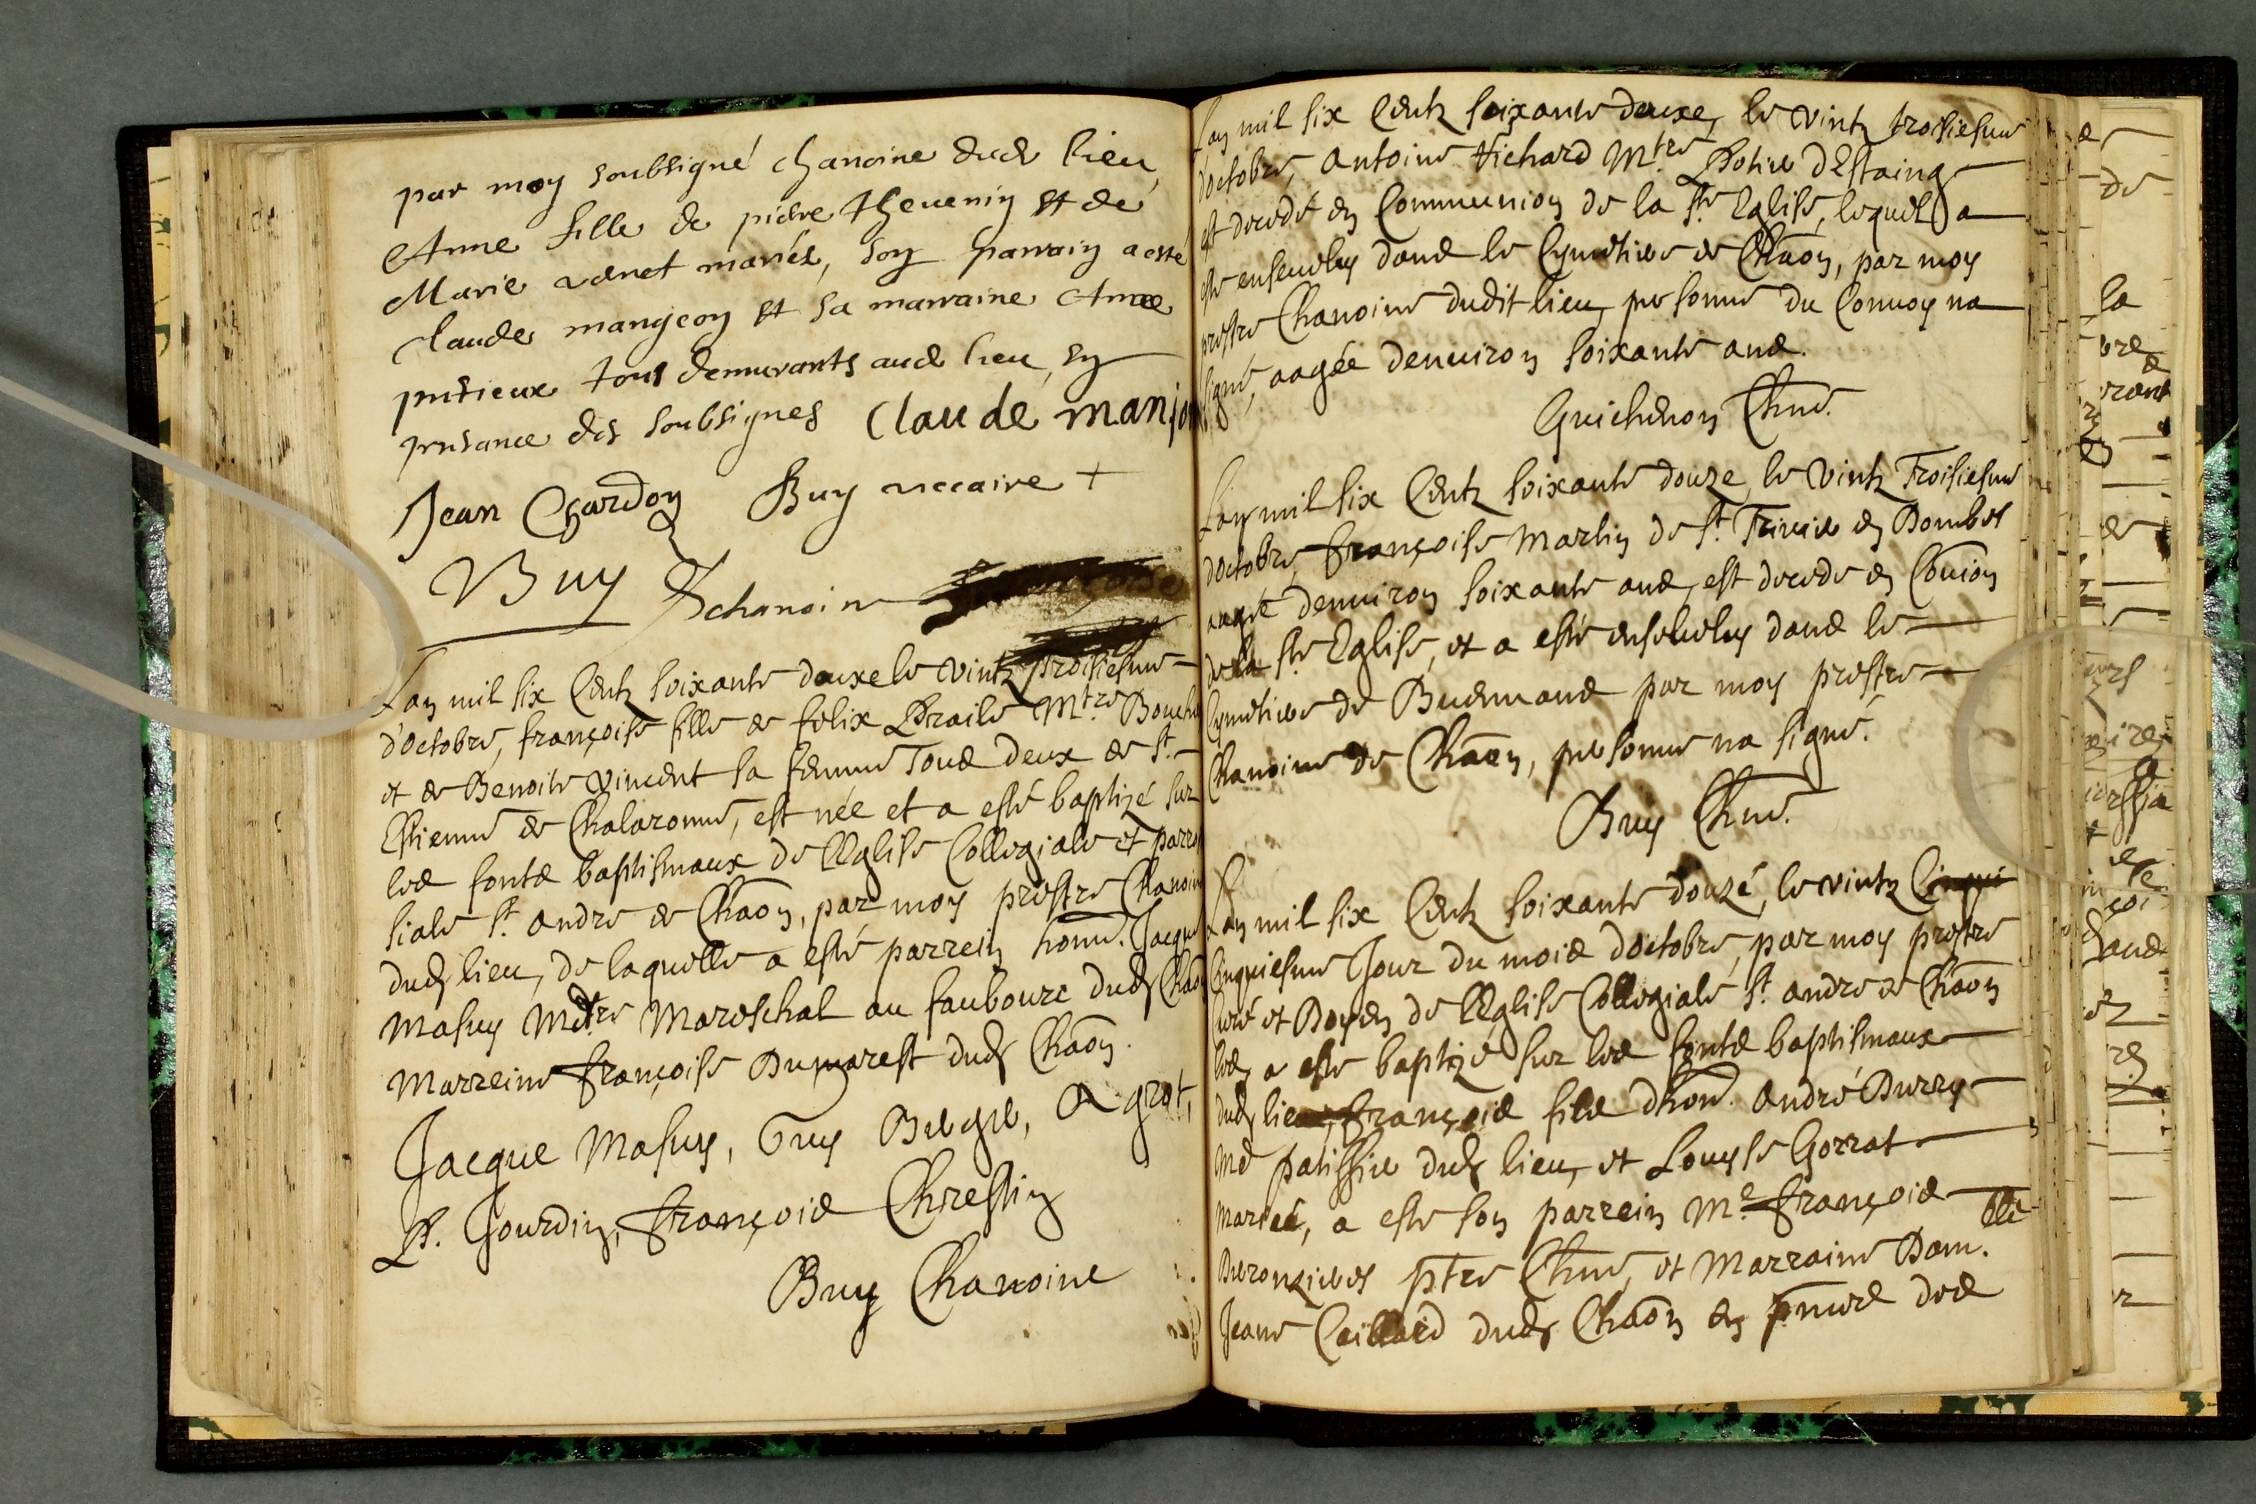 par moy soubsigné chanoine dud lieu,
Anne fille de pierre thevenin et de
Marie venet mariés, son parrain a esté
Claude mangeon et sa marraine Anne
putieux tous demeurants aud lieu, en
presance des soubsignes Claude manjon
Jean Chardon Buy viccaire +
Buy chanoine
Lan mil six Centz soixante douxe le vintz troisiesme
d'octobre, françoise fille de felix Mtre
et de Benoite Vincent sa femme Tous deux de St
Estienne de Chalaronne, est née et a esté baptizé sur
les fonts baptismaux de l'Eglise Collegiale et parro
siale St andre de Chaon, par moy prestre Chanoine
dud lieu, de laquelle a esté parrein honn. Jacque
Masuy Mtre Mareschal au faubourc dud Chaon
Marreine françoise Dumarest dud Chaon.
Jacque Masuy, Guy Berger, A grot,
P. Jourdin, françois Chrestin
Buy Chanoine
Lan mil six Centz soixante douxe, le vintz troisiesme
doctobre, Antoine Richard Mtre Potier d'Estaing
est decedé en Communion de la Ste Eglise, lequel a
esté ensevelis dans le Cymetiere de Chaon, par moy
prestre Chanoine dudit lieu, personne du Convoy na
signé, aagée denviron soixante ans.
Guichenon Chne.
Lan mil six Centz soixante douze, le vintz Troisiesme
doctobre, françoise Martin de St Trivier en Dombes
aagée denviron soixante ans, est decede en Cõuion
de la ste Eglise, et a esté ensevelis dans le
Cymetiere de Buenans par moy prestre
Chanoine de Chaon, personne na signé.
Buy Chne.
Lan mil six Centz soixante douzé, le vintz Cinqui
Cinquiesme Jour du mois doctobre, par moy prestre
curé et Doyen de l'Eglise Collegiale St andre de Chaon
a esté baptizé sur les fonts baptismaux
dud lieu, françois fils dhon. André Durry
Md patissier dud lieu, et Louyse Gorrat
mariés, a esté son parrein Me françois
ptre Chne, et Marraine Dam.lle
Jeane Caillard dud Chaon en pñnce des